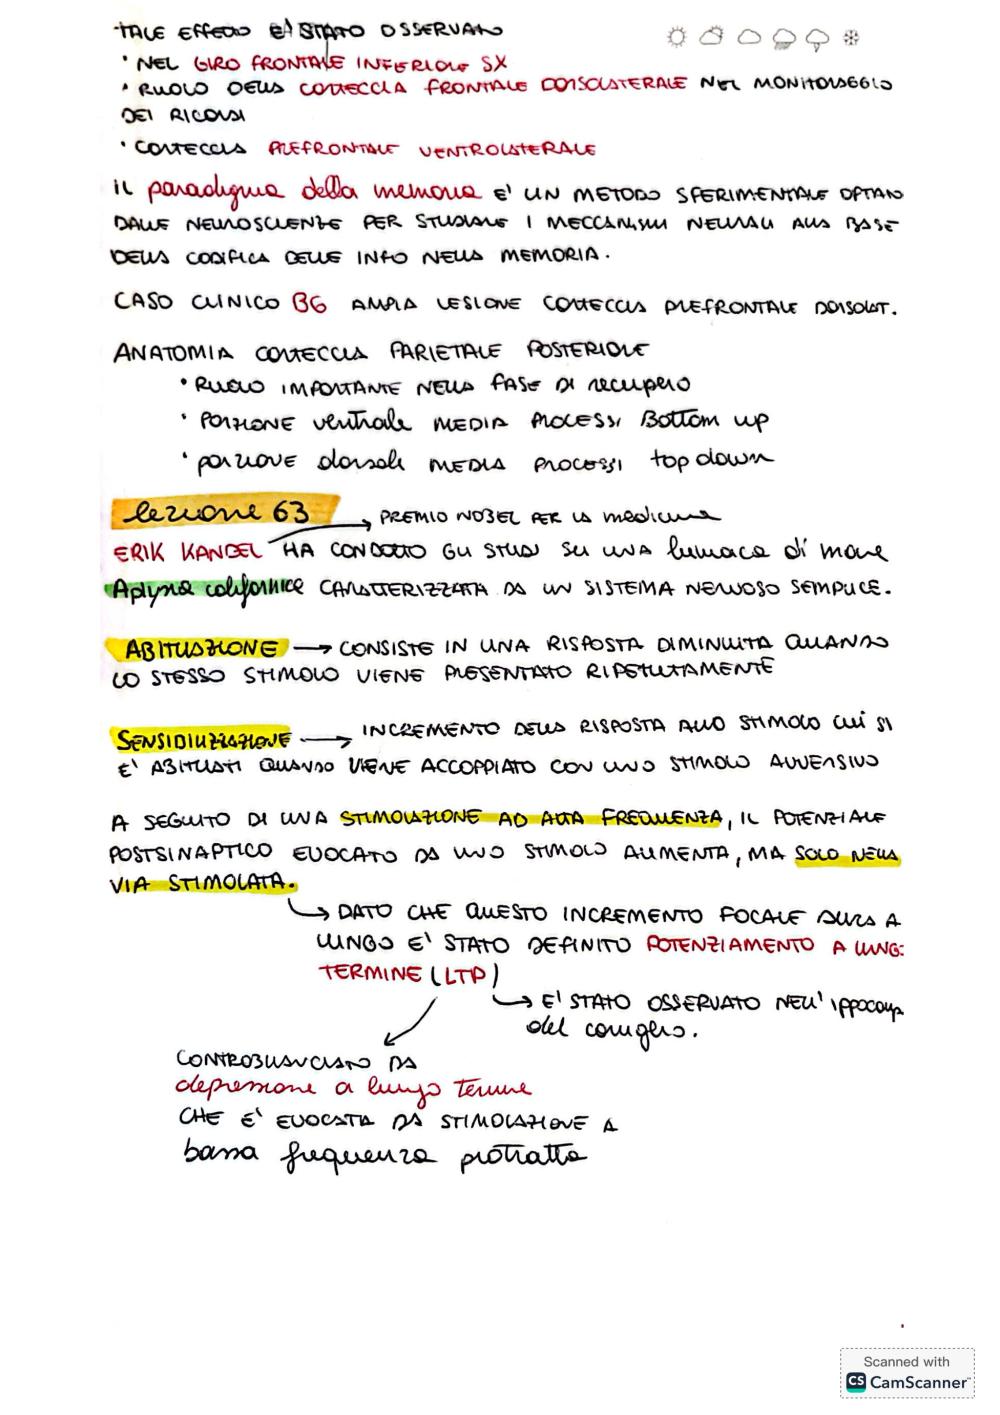 TALE EFFETTO E' STATO OSSERVATO
• NEL GIRO FRONTALE INFERIORE SX
• RUOLO DELLA CORTECCIA FRONTALE DORSOLATERALE NEL MONITORAGGIO
DEI RICORDI
• CORTECCIA PREFRONTALE VENTROLATERALE
IL paradigma della memoria E' UN METODO SPERIMENTALE OPTAN
DALLE NEUROSCIENZE PER STUDIARE I MECCANISMI NEURALI ALLA BASE
DELLA CODIFICA DELLE INFO NELLA MEMORIA.
CASO CLINICO BG AMPIA LESIONE CORTECCIA PREFRONTALE DORSOLAT.
ANATOMIA CORTECCIA PARIETALE POSTERIORE
• RUOLO IMPORTANTE NELLA FASE DI recupero
• PORZIONE ventrale MEDIA PROCESSI Bottom up
• PORZIONE dorsale MEDIA PROCESSI top down
lezione 63
→ PREMIO NOBEL PER LA medicina
ERIK KANDEL HA CONDOTTO GLI STUDI SU UNA lumaca di mare
Aplysia californice CARATTERIZZATA DA UN SISTEMA NERVOSO SEMPLICE.
ABITUAZIONE → CONSISTE IN UNA RISPOSTA DIMINUITA QUANDO
LO STESSO STIMOLO VIENE PRESENTATO RIPETUTAMENTE
SENSIDILIZZAZIONE → INCREMENTO DELLA RISPOSTA ALLO STIMOLO CUI SI
E' ABITUATI QUANDO VIENE ACCOPPIATO CON UNO STIMOLO AVVERSIVO
A SEGUITO DI UNA STIMOLAZIONE AD ALTA FREQUENZA, IL POTENZIALE
POSTSINAPTICO EVOCATO DA UNO STIMOLO AUMENTA, MA SOLO NELLA
VIA STIMOLATA.
→ DATO CHE QUESTO INCREMENTO FOCALE DURA A
LUNGO E' STATO DEFINITO POTENZIAMENTO A LUNG
TERMINE (LTP)
→ E' STATO OSSERVATO NELL' IPPOCAMP
del coniglio.
CONTROBILANCIATO DA
depressione a lungo termine
CHE E' EVOCATA DA STIMOLAZIONE A
bassa frequenza protratta
Scanned with
CS CamScanner